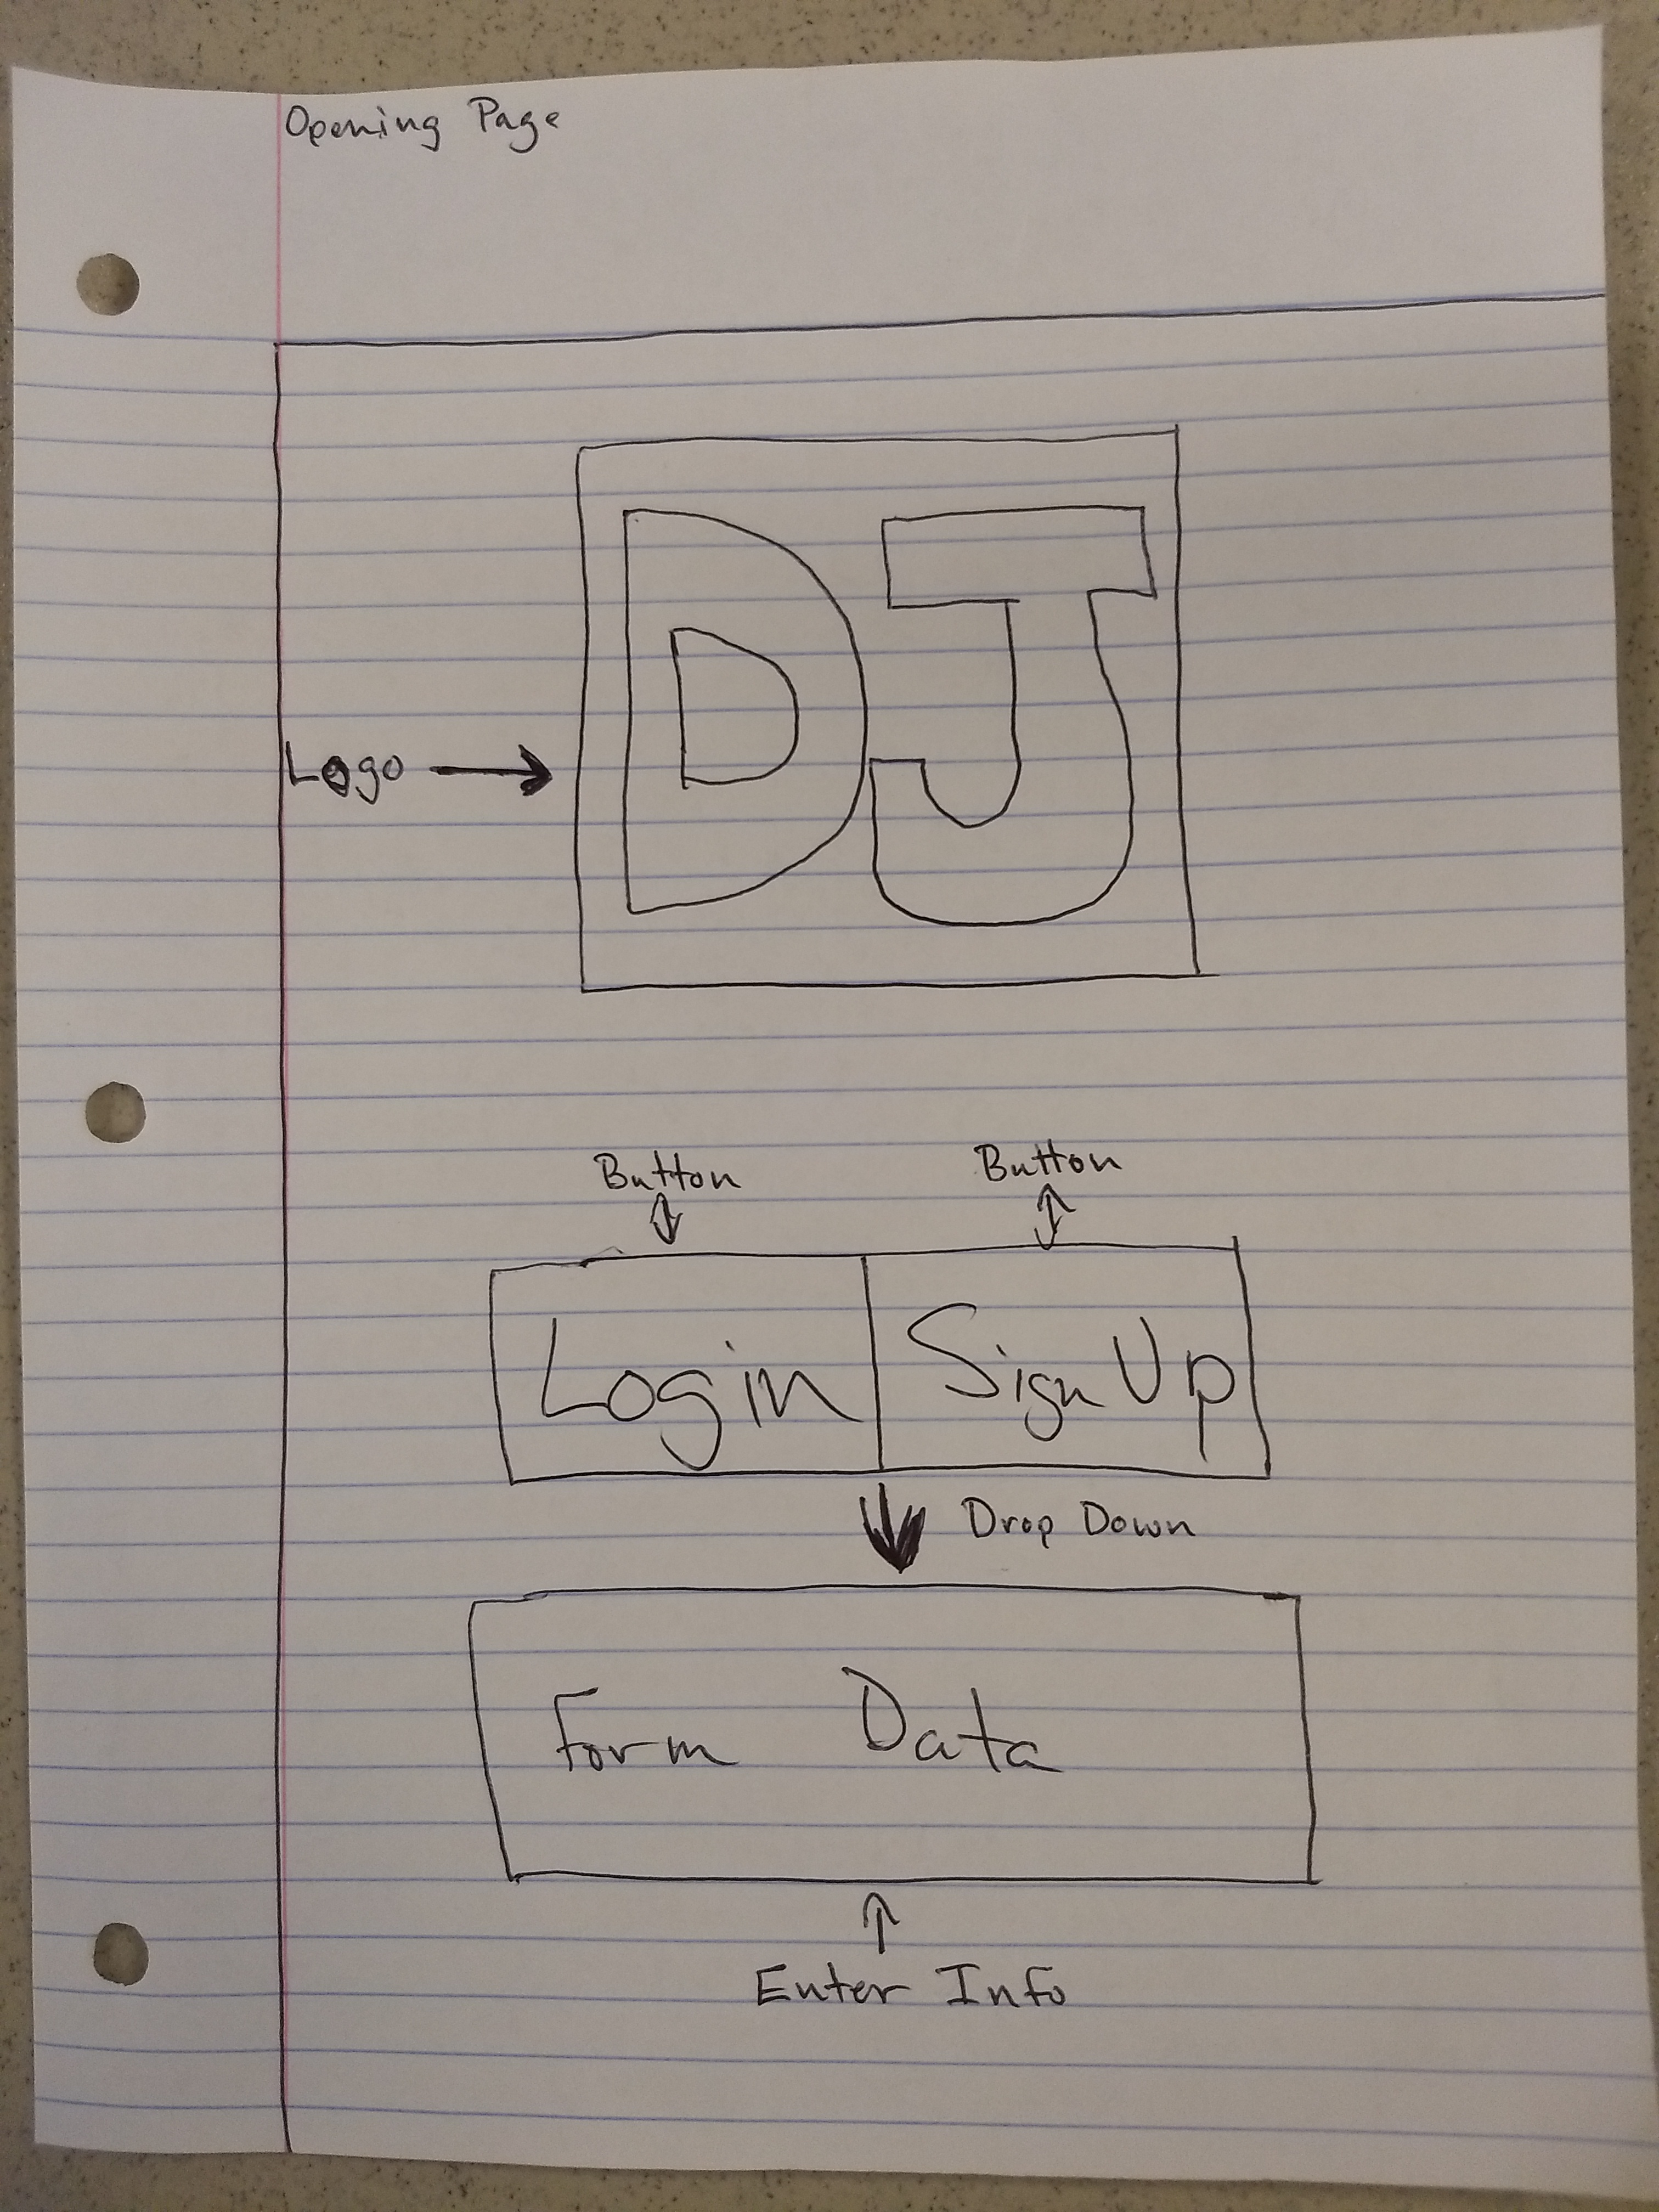 Opening Page
DJ
Logo
Button Button
Login Sign Up
Drop Down
Form Data
Enter Info